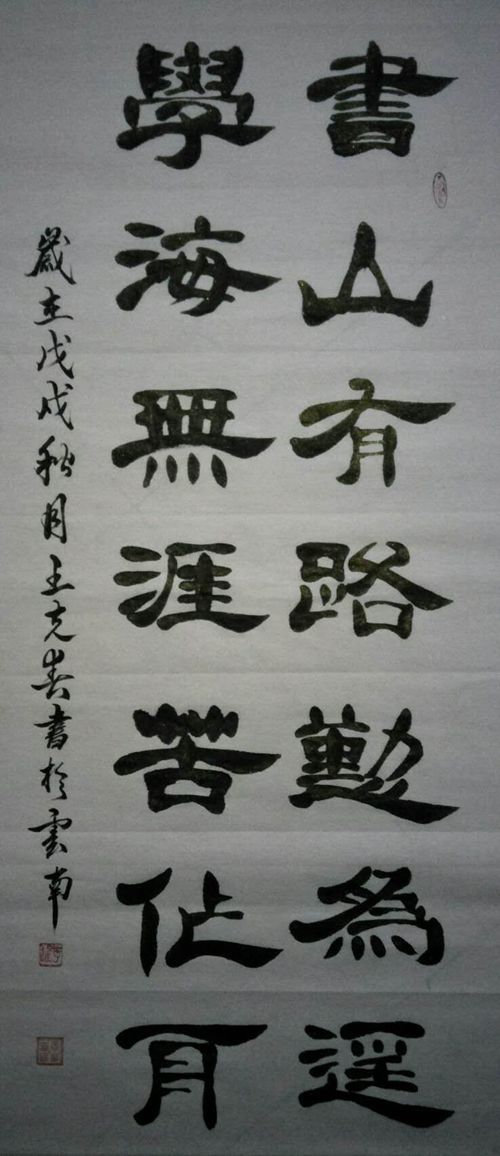 書山有路勤為逕
學海無涯苦作舟
歲在戊戌秋月王克春書於雲南